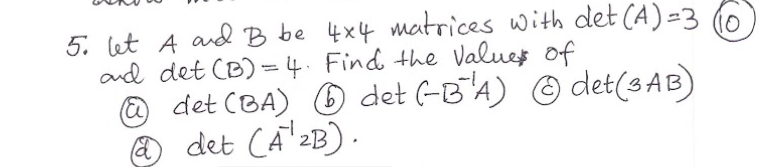 5. let A and B be 4x4 matrices with det (A) = 3 ⑩
and det (B) = 4. Find the values of
ⓐ det (BA) ⓑ det (-B⁻¹A) ⓒ det (3AB)
ⓓ det (A⁻¹2B).